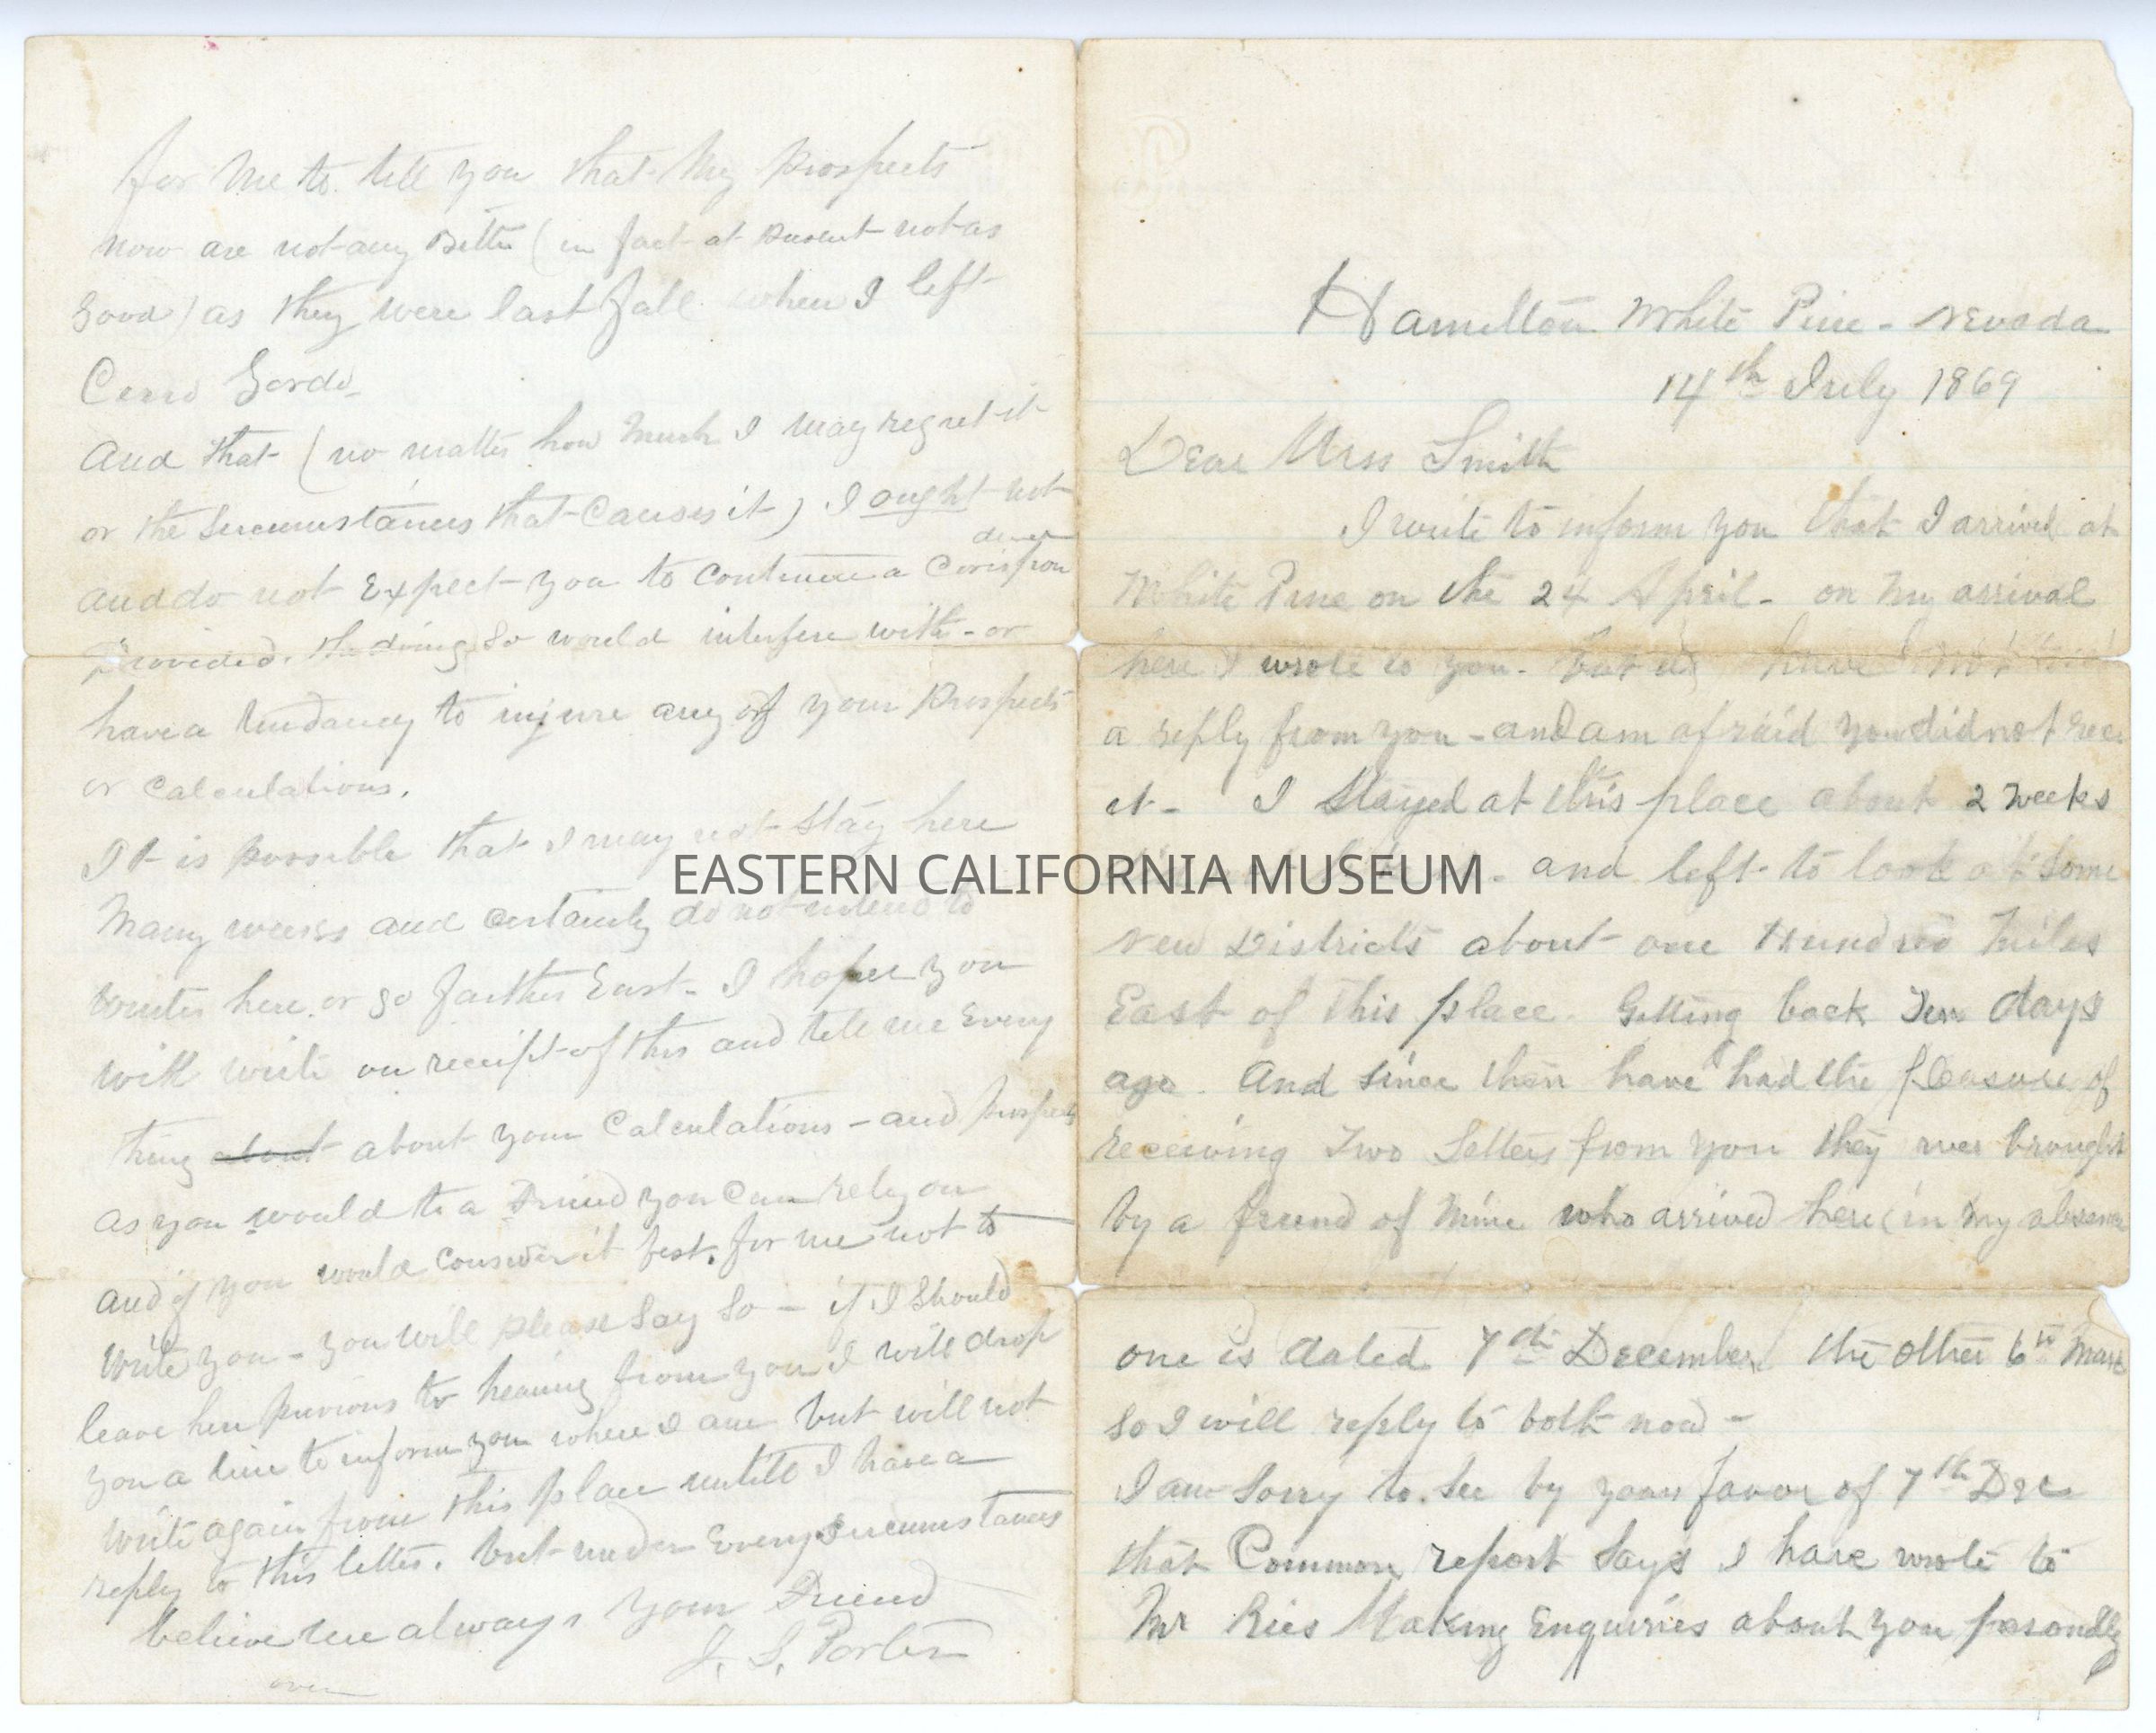 Hamilton White Pine - Nevada
14th July 1869
Dear Miss Smith
I write to inform you that I arrived at
White Pine on the 24 April - on my arrival
here I wrote to you - but as have not had
a reply from you - and am afraid you did not rec
it - I stayed at this place about 2 weeks
- and left to look at some
new Districts about one Hundred Miles
East of this place. Getting back Ten days
ago. And since then have had the pleasure of
receiving Two Letters from you they were brought
by a friend of mine who arrived here (in my absence
one is dated 7th December the other 6th March
so I will reply to both now -
I am sorry to see by your favor of 7th Dec
that Common report says I have wrote to
Mr Ries Making Enquiries about you personally
for me to tell you that my prospects
now are not any Better (in fact at present not as
good) as they were last fall when I left
Cerro Gordo
And that (no matter how much I may regret it
or the Sercumstances that Causes it) I ought not
and do not Expect you to continue a Corispon
dence
Provided. the doing so would interfere with - or
have a tendancy to injure any of your prospects
or calculations.
It is possible that I may not stay here
Many weeks and certainly do not intend to
winter here. or go farther East - I hope you
will write on receipt of this and tell me Every
thing about about your Calculations - and prospects
as you would to a Friend you can rely on
and if you would consider it best. for me not to
write you - you will please say so - if I should
leave here previous to hearing from you I will drop
you a line to inform you where I am but will not
write again from this place untill I have a
reply to this letter. but under Every Sercumstances
believe me always your Friend
J. S. Porter
over
EASTERN CALIFORNIA MUSEUM